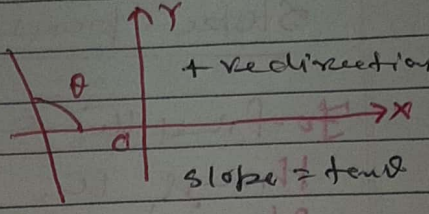 Y
θ
+ve direction
X
O
slope = tanθ